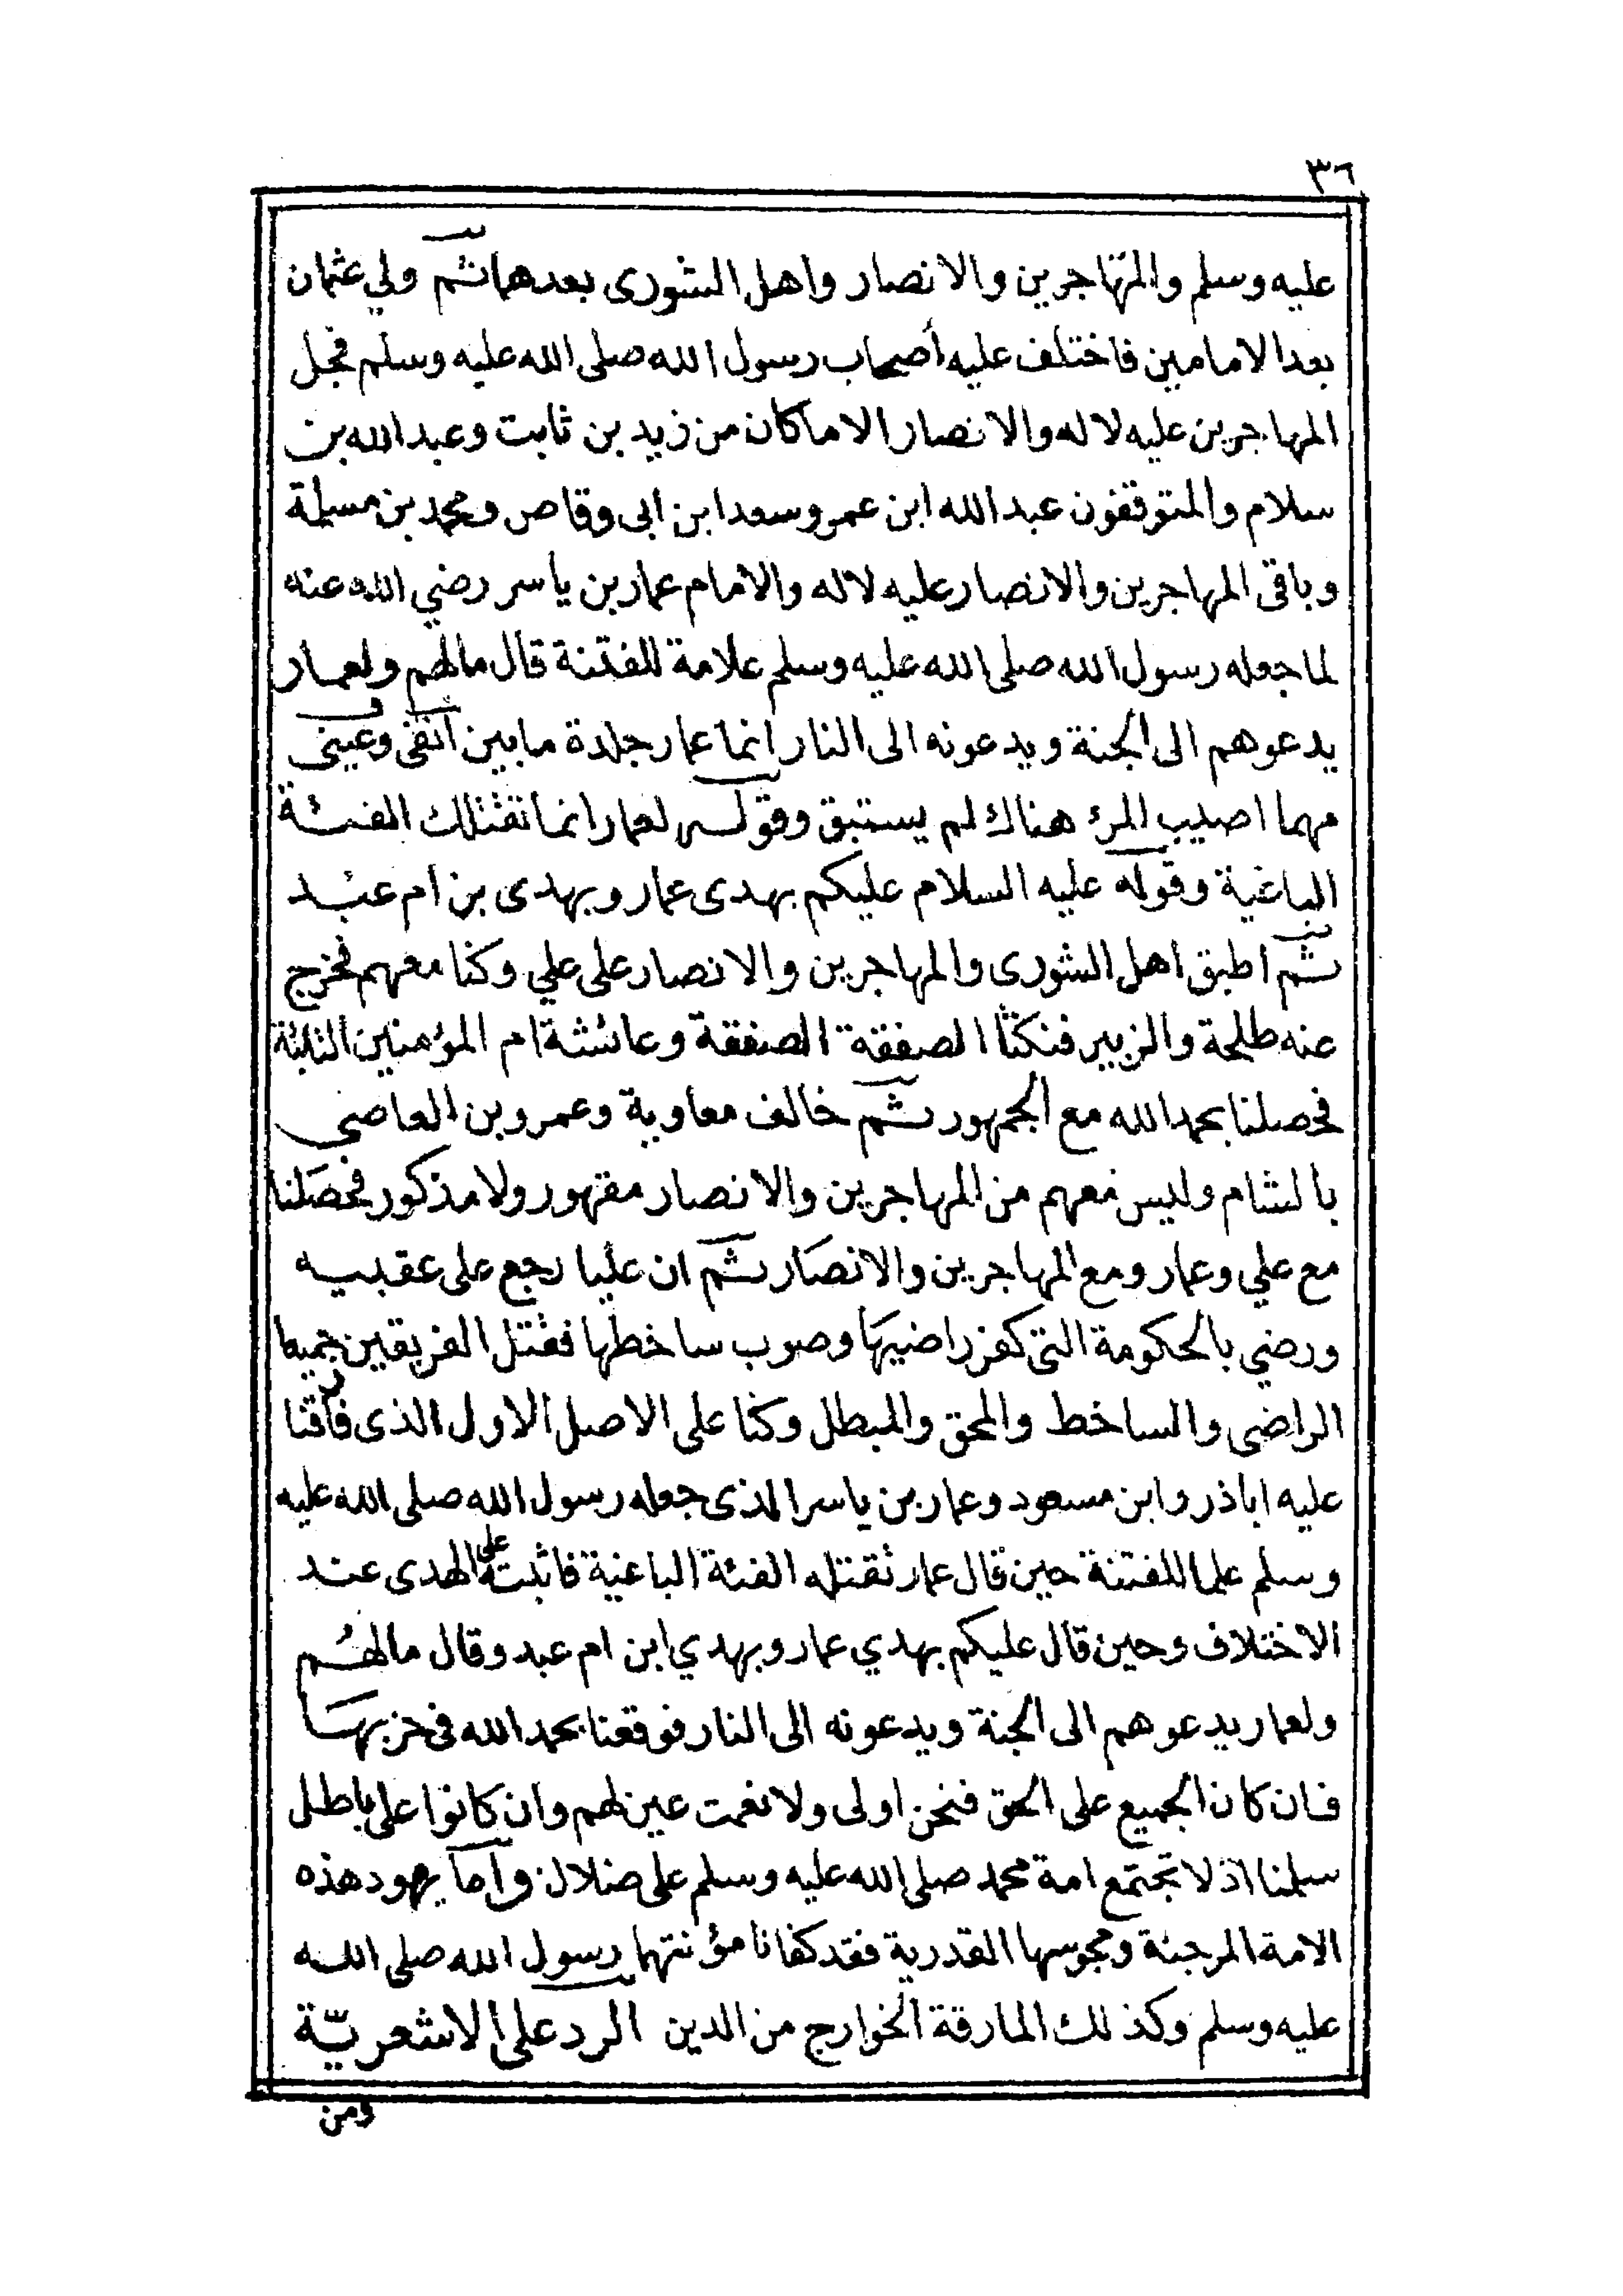 ٣٦
عليه وسلم والمهاجرين والانصار واهل الشورى بعدهما ثم ولي عثمان
بعد الامامين فاختلف عليه أصحاب رسول الله صلى الله عليه وسلم فجل
المهاجرين عليه لا له والانصار الا ما كان من زيد بن ثابت وعبد الله بن
سلام والمتوقفون عبد الله ابن عمر وسعد ابن ابى وقاص ومحمد بن مسيلمة
وباقى المهاجرين والانصار عليه لا له والامام عمار بن ياسر رضي الله عنه
لما جعله رسول الله صلى الله عليه وسلم علامة للفتنة قال مالهم ولعمار
يدعوهم الى الجنة ويدعونه الى النار انما عمار جلدة ما بين انفى وعينى
مهما اصيب المرئ هناك لم يستبق وقوله لعمار انما تقتلك الفئة
الباغية وقوله عليه السلام عليكم بهدى عمار وبهدى بن ام عبد
ثم اطبق اهل الشورى والمهاجرين والانصار على علي وكنا معهم فخرج
عنه طلحة والزبير فنكثا الصفقة الصفقة وعائشة ام المؤمنين الثلثة
فحصلنا بحمد الله مع الجمهور ثم خالف معاوية وعمرو بن العاصي
بالشام وليس معهم من المهاجرين والانصار مقهور ولا مذكور فحصلنا
مع علي وعمار ومع المهاجرين والانصار ثم ان عليا رجع على عقبيه
ورضي بالحكومة التى كفر راضيها وصوب ساخطها فقتل الفريقين جميعا
الراضى والساخط والمحق والمبطل وكنا على الاصل الاول الذى فارقنا
عليه اباذر وابن مسعود وعمار بن ياسر الذى جعله رسول الله صلى الله عليه
وسلم علما للفتنة حين قال عمار تقتله الفئة الباغية فاثبته على الهدى عند
الاختلاف وحين قال عليكم بهدي عمار وبهدي ابن ام عبد وقال مالهم
ولعمار يدعوهم الى الجنة ويدعونه الى النار فوقعنا بحمد الله فى حزبها
فان كان الجميع على الحق فنحن اولى ولا نعمت عين لهم وان كانوا على باطل
سلمنا اذ لا تجتمع امة محمد صلى الله عليه وسلم على ضلال واما يهود هذه
الامة المرجئة ومجوسها القدرية فقد كفانا مؤنتهما رسول الله صلى الله
عليه وسلم وكذلك المارقة الخوارج من الدين الرد على الاشعريّة
ومن